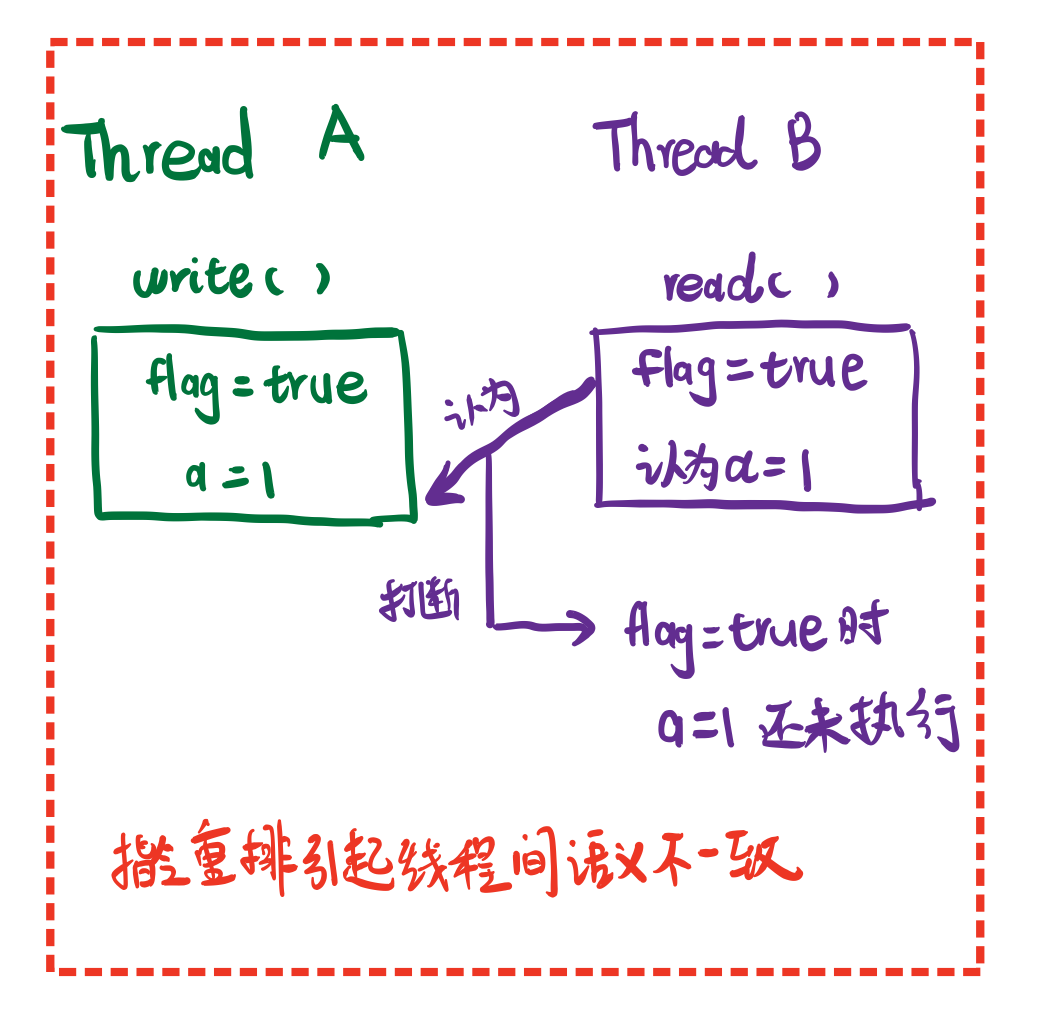 Thread A
Thread B
write( )
flag=true
a=1
read( )
flag=true
认为a=1
认为
打断
flag=true时
a=1 还未执行
指令重排引起线程间语义不一致